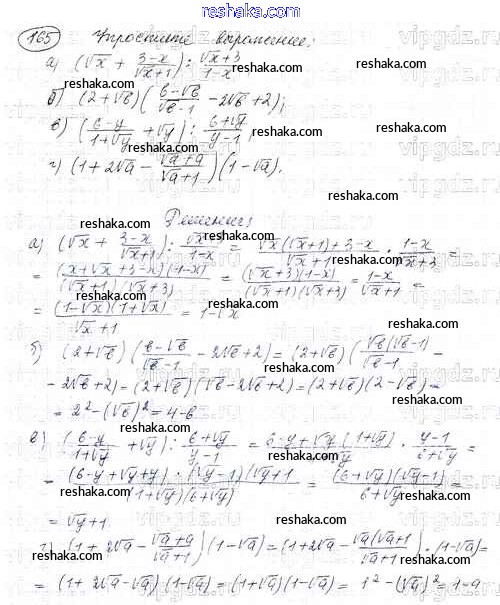 reshaka.com
165 Упростите выражение:
а) (√x + 3-x/√x+1) : √x+3/1-x
б) (2+√b)(b-√b/√b-1 - 2√b+2);
в) (6-y/1+√y + √y) : 6+√y/y-1
г) (1+2√a - √a+a/√a+1)(1-√a).
Решение:
а) (√x + 3-x/√x+1) : √x+3/1-x = √x(√x+1)+3-x/√x+1 · 1-x/√x+3 =
= (x+√x+3-x)(1-x)/(√x+1)(√x+3) = (√x+3)(1-x)/(√x+1)(√x+3) = 1-x/√x+1 =
= (1-√x)(1+√x)/√x+1 = 1-√x
б) (2+√b)(b-√b/√b-1 - 2√b+2) = (2+√b)(√b(√b-1)/√b-1 -
- 2√b+2) = (2+√b)(√b-2√b+2) = (2+√b)(2-√b) =
= 2²-(√b)² = 4-b
в) (6-y/1+√y + √y) : 6+√y/y-1 = 6-y+√y(1+√y)/1+√y · y-1/6+√y =
= (6-y+√y+y)·(√y-1)(√y+1/(1+√y)(6+√y) = (6+√y)(√y-1)/6+√y =
= √y+1.
г) (1+2√a - √a+a/√a+1)(1-√a) = (1+2√a - √a(√a+1)/√a+1)·(1-√a) =
= (1+2√a-√a)(1-√a) = (1+√a)(1-√a) = 1²-(√a)² = 1-a